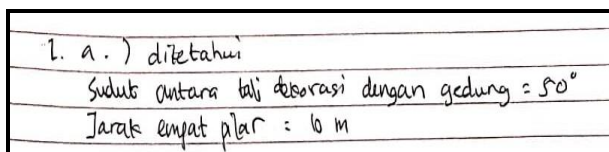 1. a. ) diketahui
Sudut antara tali dekorasi dengan gedung = 50°
Jarak empat pilar = 10 m